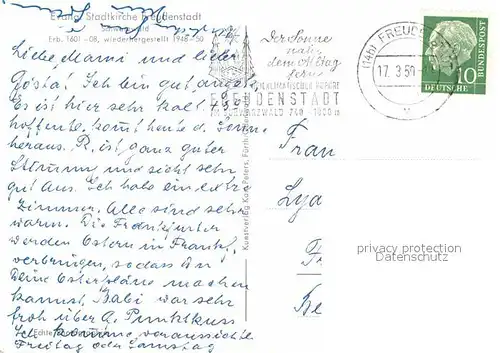 Evang. Stadtkirche Freudenstadt
Schwarzwald
Erb. 1601-08, wiederhergestellt 1948-50
Liebe Mammi und lieber
Gösta! Ich bin gut
Es ist hier sehr kalt
hoffentl. kommt heute d. Sonne
heraus. R. ist ganz guter
Stimmung und sieht sehr
gut aus. Ich habe ein extra
Zimmer. Alle sind sehr
warm. Die Frankfurter
werden Ostern in Frankf.
verbringen, sodass Du
Deine Osterpläne machen
kannst. Babi war sehr
froh über A. Punktkuss
Ich komme voraussichtl.
Freitag oder Samstag
Echte
Kunstverlag Kon Peters, Fürth
Der Sonne
nah
dem Alltag
fern
HEILKLIMATISCHER KURORT
FREUDENSTADT
IM SCHWARZWALD 740-1000 m
(14b) FREUDEN
17. 3. 59
10
DEUTSCHE BUNDESPOST
Frau
Lya
Fr
He
privacy protection
Datenschutz